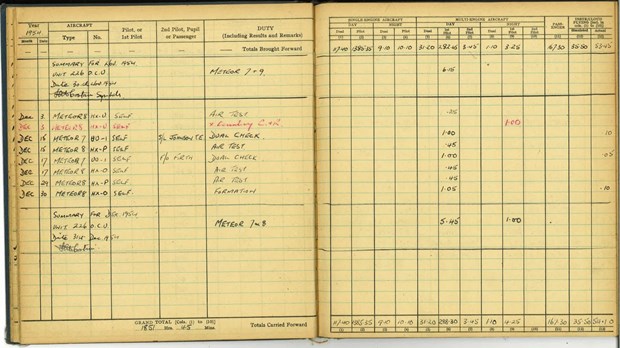 Year 1954 AIRCRAFT Pilot, or 1st Pilot 2nd Pilot, Pupil or Passenger DUTY (Including Results and Remarks)
Month Date Type No.
Totals Brought Forward
SUMMARY FOR NOV 1954
UNIT 226 O.C.U METEOR 7 + 9
DATE 30th Nov 1954
DEC 3 METEOR 8 SELF AIR TEST
DEC 3 METEOR 8 SELF
DEC 16 METEOR 7 SELF DUAL CHECK.
DEC 16 METEOR 8 HX-P SELF AIR TEST
DEC 17 METEOR 7 SELF F/O FIRTH DUAL CHECK
DEC 17 METEOR 8 HX-O SELF AIR TEST
DEC 29 METEOR 8 HX-P SELF AIR TEST
DEC 30 METEOR 8 HX-O SELF FORMATION
SUMMARY FOR DEC 1954
UNIT 226 O.C.U METEOR 7 & 8
DATE 31st Dec 1954
GRAND TOTAL [Cols. (1) to (10)]
1851 Hrs. 45 Mins.
Totals Carried Forward
SINGLE-ENGINE AIRCRAFT MULTI-ENGINE AIRCRAFT
DAY NIGHT DAY NIGHT
Dual Pilot Dual Pilot Dual 1st Pilot 2nd Pilot Dual 1st Pilot 2nd Pilot
(1) (2) (3) (4) (5) (6) (7) (8) (9) (10) (11) (12) (13)
9.10 10.10 31.20 282.45 3.45 1.10 3.25 167.30 35.50
6.15
.25
1.00
1.00 .10
.45
1.00 .05
.45
.45
1.05 .10
5.45 1.00
9.10 10.10 31.20 288.30 3.45 1.10 4.25 167.30 35.50
(1) (2) (3) (4) (5) (6) (7) (8) (9) (10) (11) (12) (13)